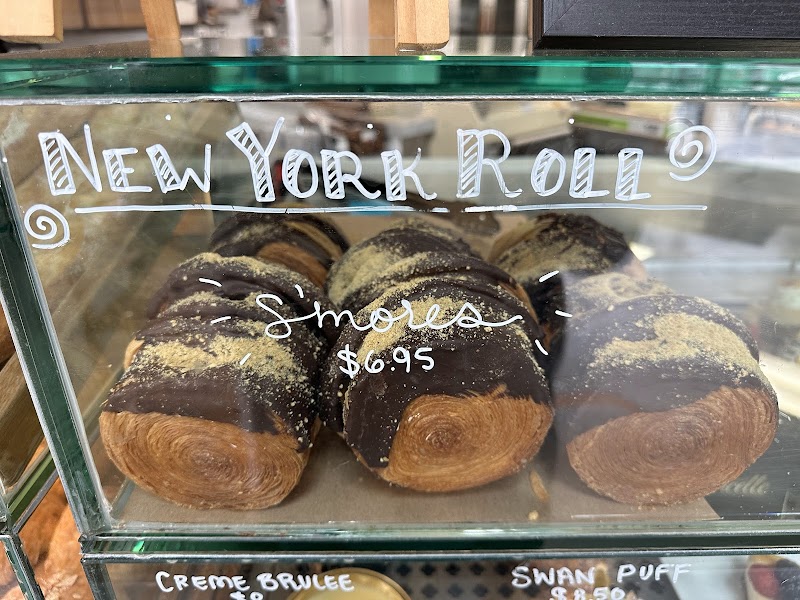 New York Roll
S'mores
$6.95
CREME BRULEE
SWAN PUFF
$8.50